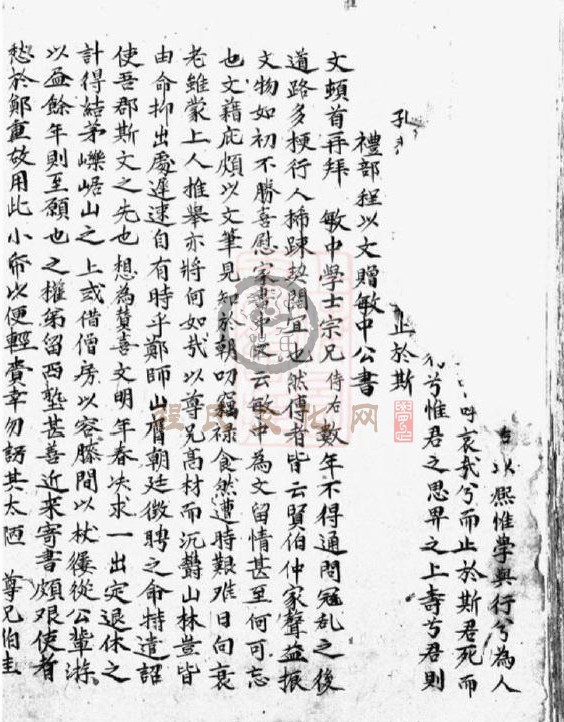 以熙惟學與行兮為人
呼哀哉兮而止於斯君死而
兮惟君之思畀之上壽兮君則
孔 止於斯
禮部程以文贈敏中公書
文頓首再拜 敏中學士宗兄侍右數年不得通問寇乱之後
道路多梗行人稀踈契闊宜也然傳者皆云賢伯仲家聲益振
文物如初不勝喜慰宋書中又云敏中為文留情甚至何可忘
也文藉庇頗以文筆見知於朝叨竊禄食然遭時艱难日向衰
老雖蒙上人推舉亦將何如哉以尊兄高材而沉欝山林豈皆
由命抑出處遲速自有時乎鄭師山膺朝廷徴聘之命特遣詔
使吾郡斯文之先也想為賛喜文明年春决求一出定退休之
計得結茅山之上或借僧房以容膝間以杖屨從公輩游
以盡餘年則至願也之權弟留西塾甚善近来寄書頗艰使者
愁於鄭重故用此小帋以便輕賫幸勿訝其太陋 尊兄伯圭
程氏文化网